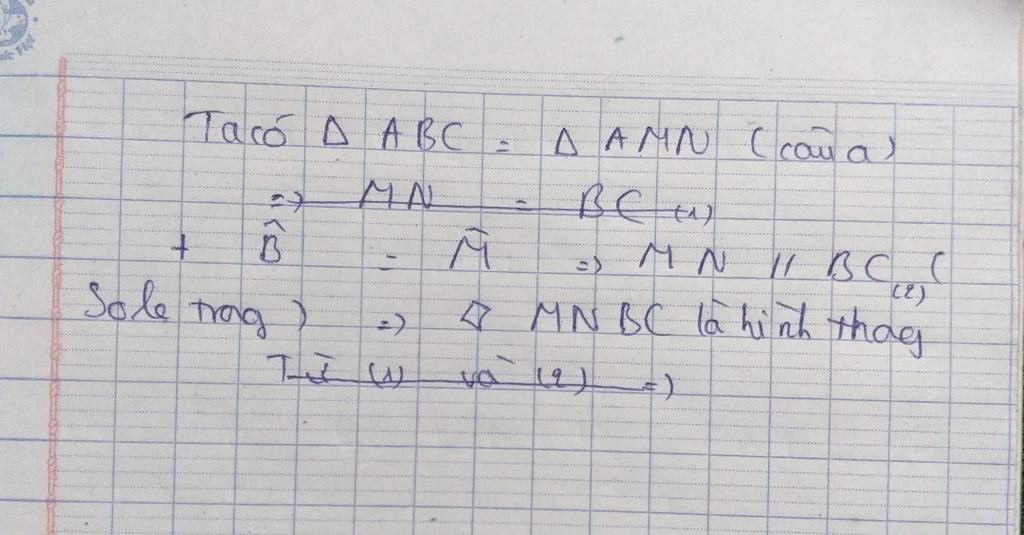 Ta có Δ ABC = Δ AMN (câu a)
=> MN = BC (1)
+ B̂ = M̂ => MN // BC (2) (
So le trog) => ◊ MNBC là hình thag
Từ (1) và (2) =>